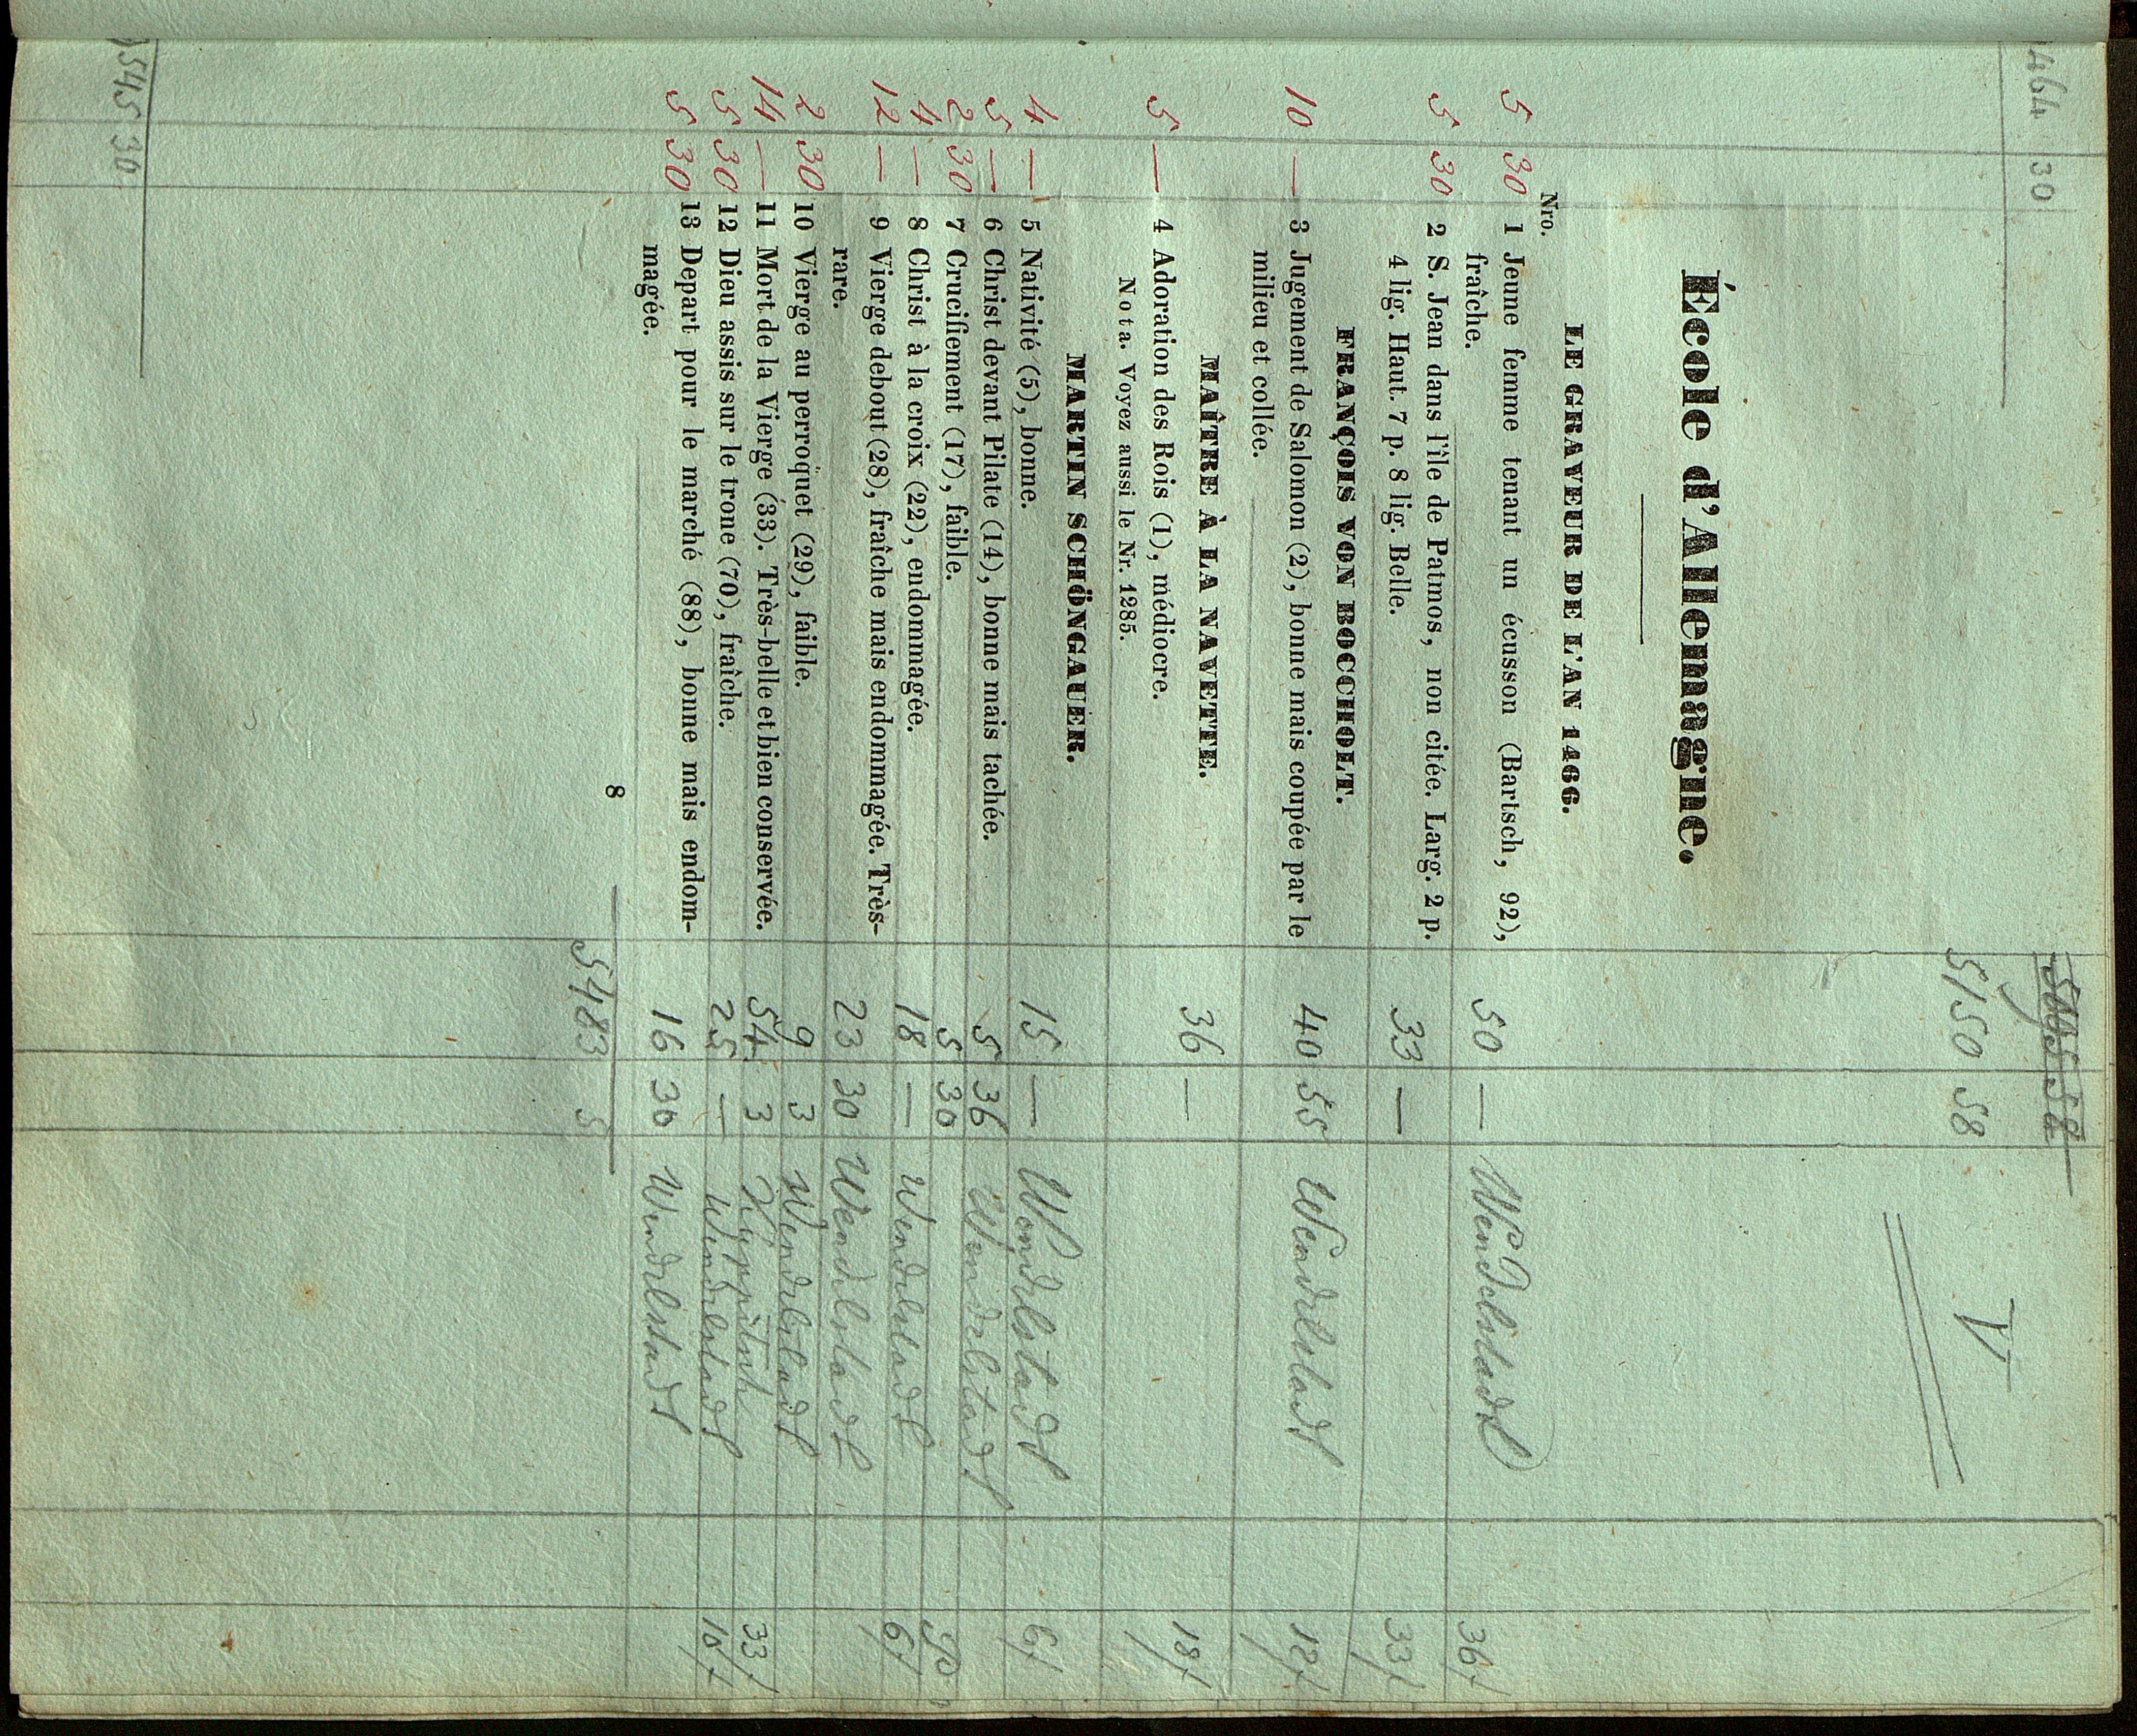 464 30
5150 58
V
École d'Allemagne.
LE GRAVEUR DE L'AN 1466.
Nro.
5 30 1 Jeune femme tenant un écusson (Bartsch, 92), 50 — Wendelstadt 36f
fraîche.
5 30 2 S. Jean dans l'île de Patmos, non citée. Larg. 2 p.
4 lig. Haut. 7 p. 8 lig. Belle. 33 — 33f
FRANÇOIS VON BOCCHOLT.
10 — 3 Jugement de Salomon (2), bonne mais coupée par le 40 55 Wendelstadt 18f
milieu et collée.
MAÎTRE À LA NAVETTE.
36 — 18f
5 — 4 Adoration des Rois (1), médiocre.
Nota. Voyez aussi le Nr. 1285.
MARTIN SCHÖNGAUER.
4 — 5 Nativité (5), bonne. 15 — Wendelstadt 6f
5 — 6 Christ devant Pilate (14), bonne mais tachée. 5 36 Wendelstadt
2 30 7 Crucifiement (17), faible. 5 30
4 — 8 Christ à la croix (22), endommagée. 18 — Wendelstadt 6f
12 — 9 Vierge debout (28), fraîche mais endommagée. Très-
rare. 23 30 Wendelstadt
2 30 10 Vierge au perroquet (29), faible. 9 3 Wendelstadt
14 — 11 Mort de la Vierge (33). Très-belle et bien conservée. 54 3 33f
5 30 12 Dieu assis sur le trone (70), fraîche. 25 — Wendelstadt 10f
5 30 13 Depart pour le marché (88), bonne mais endom-
magée. 16 30 Wendelstadt
8
5483 5
545 30